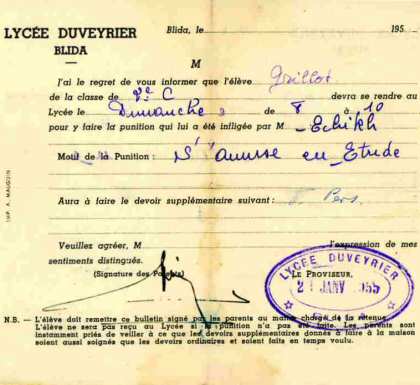 LYCÉE DUVEYRIER
BLIDA
Blida, le 195
M
J'ai le regret de vous informer que l'élève Grillot
de la classe de C devra se rendre au
Lycée le Dimanche de 8 à 10
pour y faire la punition qui lui a été infligée par M Echikh
Motif de la Punition : S'amuse en Etude
Aura à faire le devoir supplémentaire suivant : Pers.
Veuillez agréer, M l'expression de mes
sentiments distingués.
(Signature des Parents) LE PROVISEUR,
LYCÉE DUVEYRIER
JANV 1955
BLIDA
N.B. — L'élève doit remettre ce bulletin signé par les parents au maître chargé de la retenue.
L'élève ne sera pas reçu au Lycée si la punition n'a pas été faite. Les parents sont
instamment priés de veiller à ce que les devoirs supplémentaires donnés à faire à la maison
soient aussi soignés que les devoirs ordinaires et soient faits en temps voulu.
IMP. A. MAUGUIN